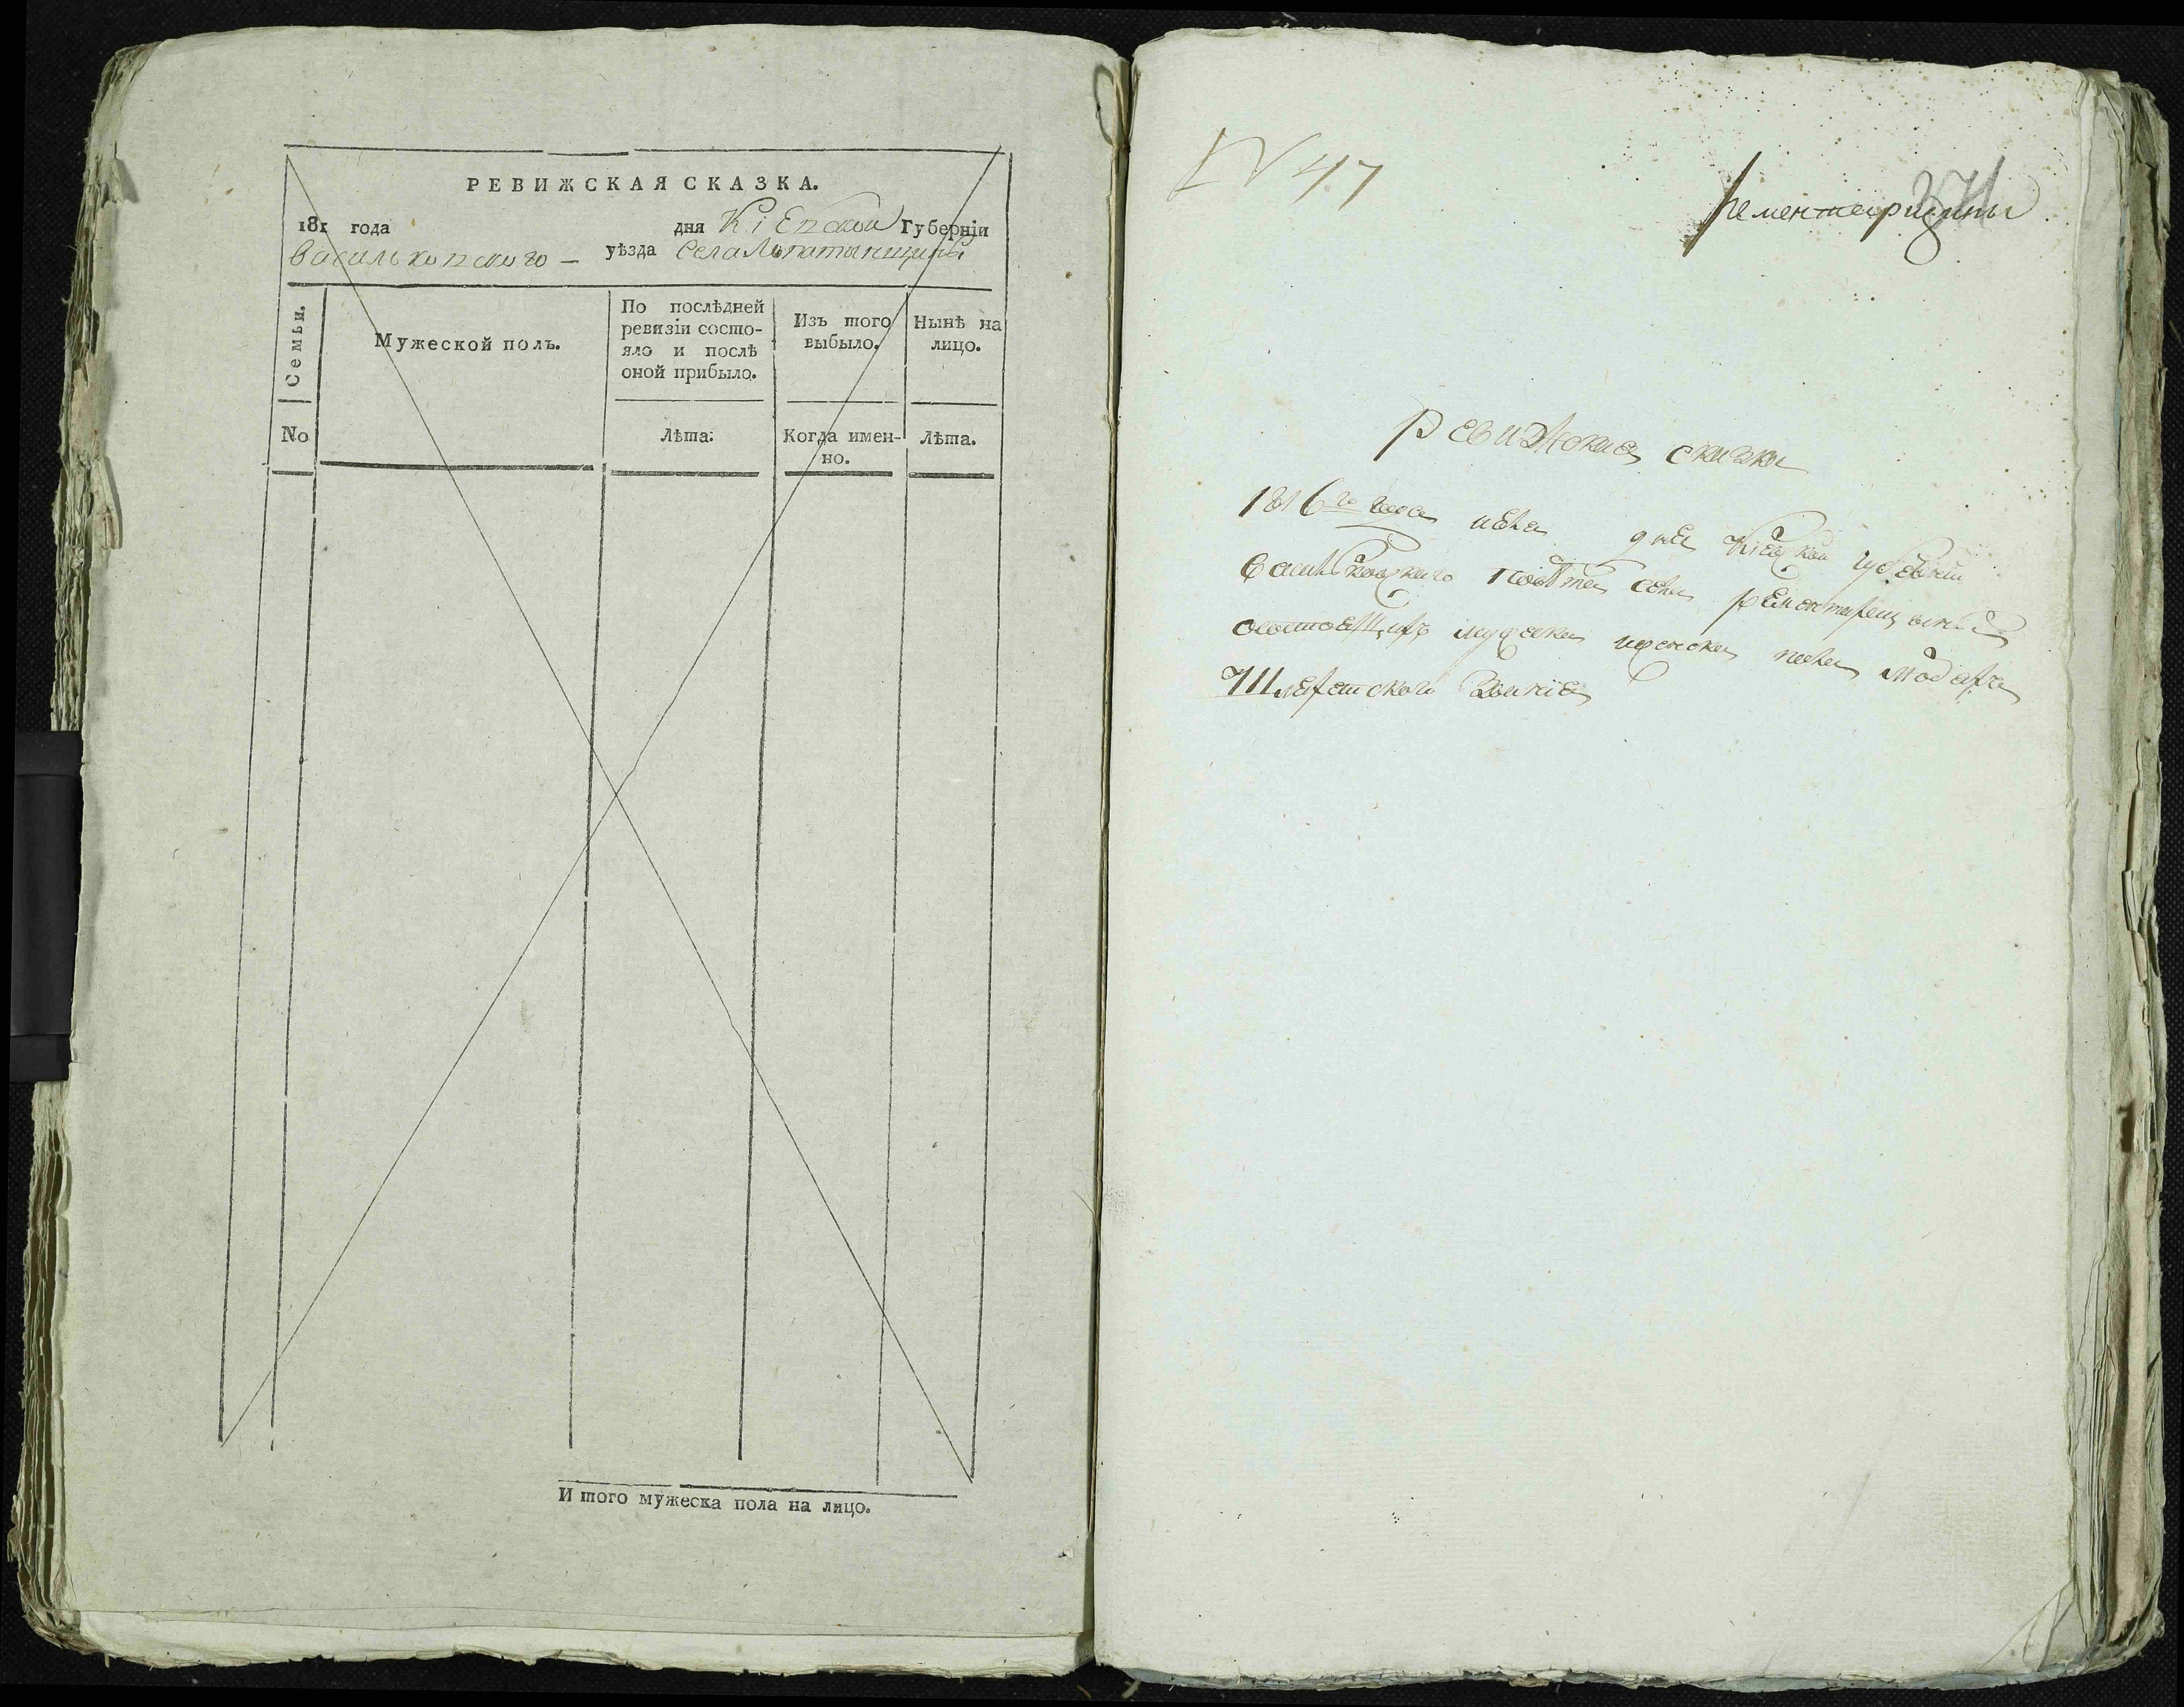 РЕВИЖСКАЯ СКАЗКА.
181 года дня Кіевской Губерніи
Васильковского — уѣзда Села Лопатинщины
Семьи. Мужеской полъ. По послѣдней ревизіи состояло и послѣ оной прибыло. Изъ того выбыло. Нынѣ на лицо.
No Лѣта: Когда именно. Лѣта.
И того мужеска пола на лицо.
N 47
371
Рементарщины
Ревижские сказки
1816го года дня Кіевской губерніи
Васильковского повѣта села Рементарщины
состоящихъ мужеска и женска пола
Шляхетского званія